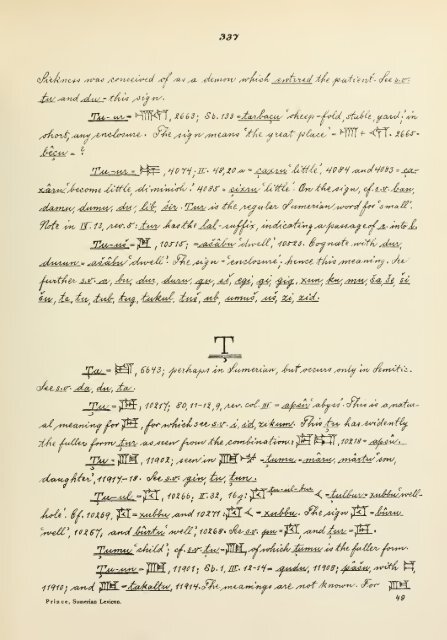 337
Sickness was conceived of as a demon which entered the patient. See s.v.
tu and du - this sign.
Tu-ur = 2663; Sb. 133 = tarbaçu 'sheep-fold, stable, yard;' in
short, any enclosure. The sign means 'the great place' = + 2665 -
bêçu = ?
Tu-ur = 4074; II. 48, 20 a = çaxru 'little'. 4084 and 4083 = ça-
xâru 'become little, diminish'. 4085 = çixru 'little'. On the sign, cf. s.v. ban,
damu, dumu, du, Tur is the regular Sumerian word for 'small'.
Note in IV. 13, rev. 5: tur has the lal-suffix, indicating a passage of r into l.
Tu-uš = 10515; = ašâbu 'dwell', 10523. Cognate with dur,
durun = ašâbu 'dwell'. The sign = 'enclosure'; hence this meaning. See
further s.v. a, bu, dur, duru, gu, eš, egi, gi, gig, xun, ku, mu, ša, še, ši
šu, te, tu, tub, tug, tukul, tuš, ub, umuš, uš, zi, zid.
Ṭ
Ṭa = 6643; perhaps in Sumerian, but occurs only in Semitic.
See s.v. da, du, ta.
Ṭu = 10217; 80, 11-12, 9, rev. col. III = apsû 'abyss'. This is a natur-
al meaning for for which see s.v. i, id, zikum. This ṭu has evidently
the fuller form ṭur as seen from the combination: 10218 = apsû.
Ṭu = 11902; seen in = ṭumu = mâru, mârtu 'son,
daughter', 11917-18. See s.v. gin, tu, tun.
Ṭu-ul = 10266, II. 32, 16g: ṭu-ul-ṭur = ṭulbur = xubbu 'well-
hole'. Cf. 10269, = xubbu and 10271: = xubbu. The sign = bûru
'well', 10267, and bûrtu 'well', 10268. See s.v. pu = and ṭur =
Ṭumu 'child'; cf. s.v. ṭu = of which ṭumu is the fuller form.
Ṭu-un = 11901; Sb. 1, III. 12-14 = qudu, 11908; pâšu, with
11910; and = takaltu, 11914. The meanings are not known. For
Prince, Sumerian Lexicon.